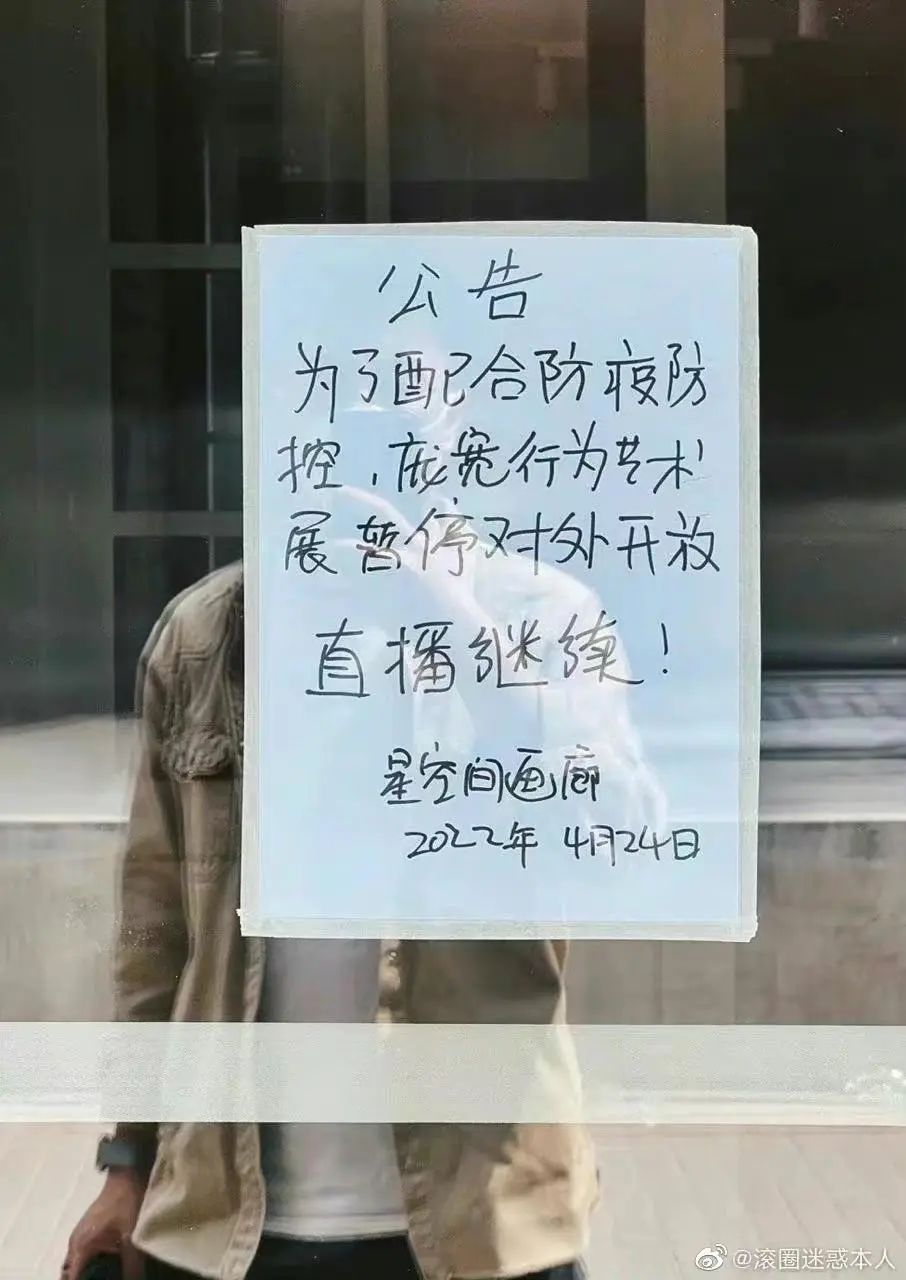 公告
为了配合防疫防
控，庞宽行为艺术
展暂停对外开放
直播继续！
星空间画廊
2022年 4月24日
@滚圈迷惑本人